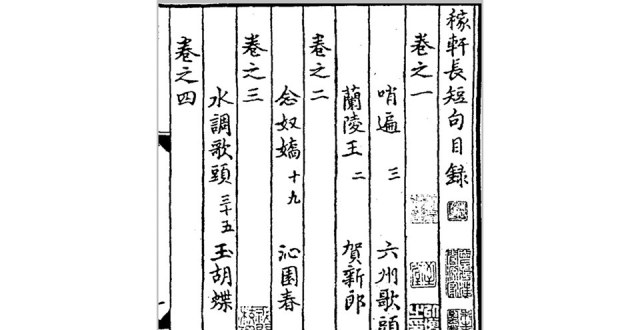 稼軒長短句目錄
卷之一
哨遍 三 六州歌頭
蘭陵王 二 賀新郎
卷之二
念奴嬌 十九 沁園春
卷之三
水調歌頭 三十五 玉胡蝶
卷之四